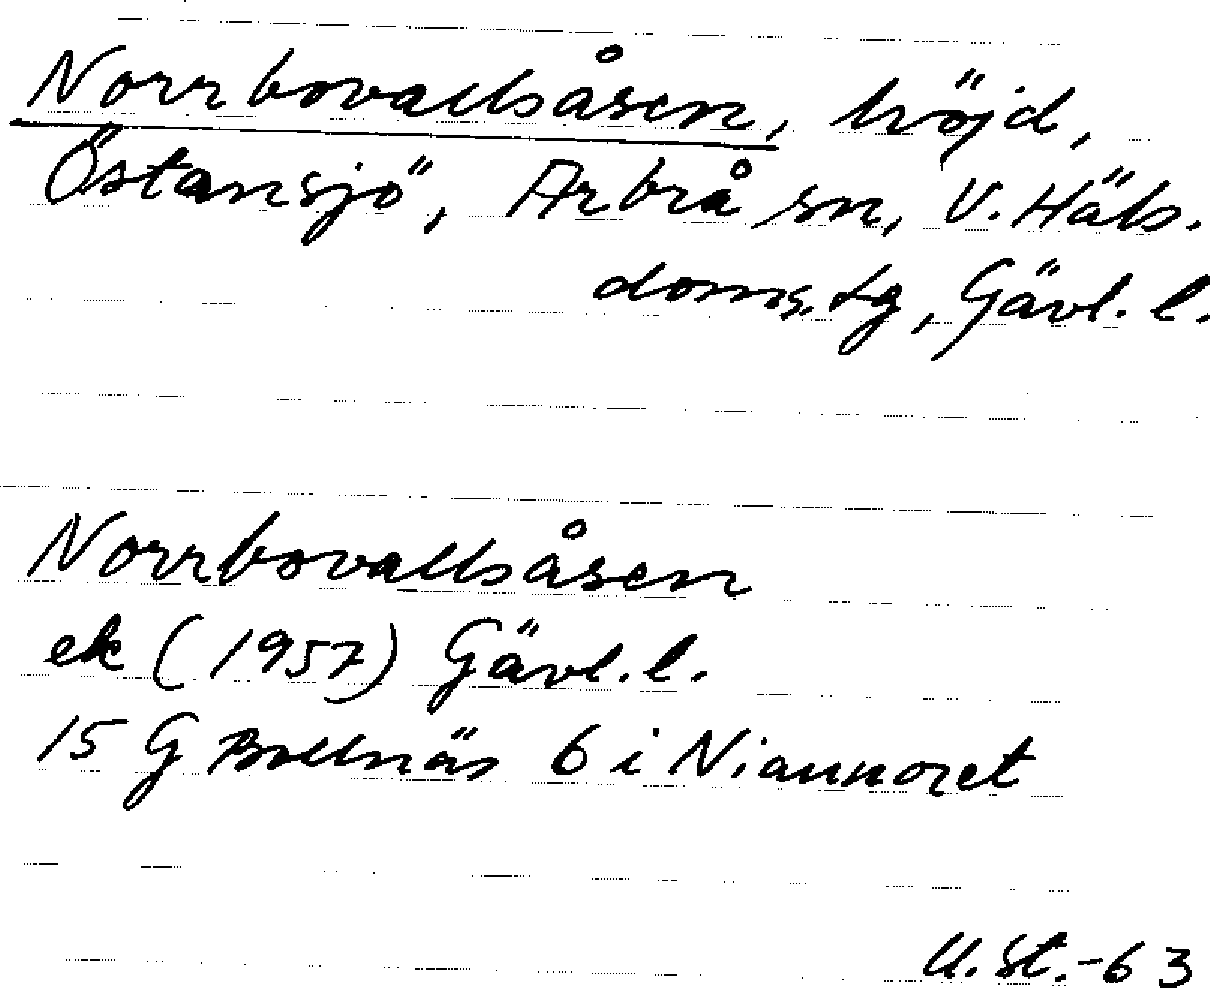 Norrbovallsåsen, höjd,
Östansjö, Arbrå sn, V. Häls.
doms.tg, Gävl. l.
Norrbovallsåsen
ek (1957) Gävl. l.
15 G Bollnäs 6 i Nianoret
U. St.-63